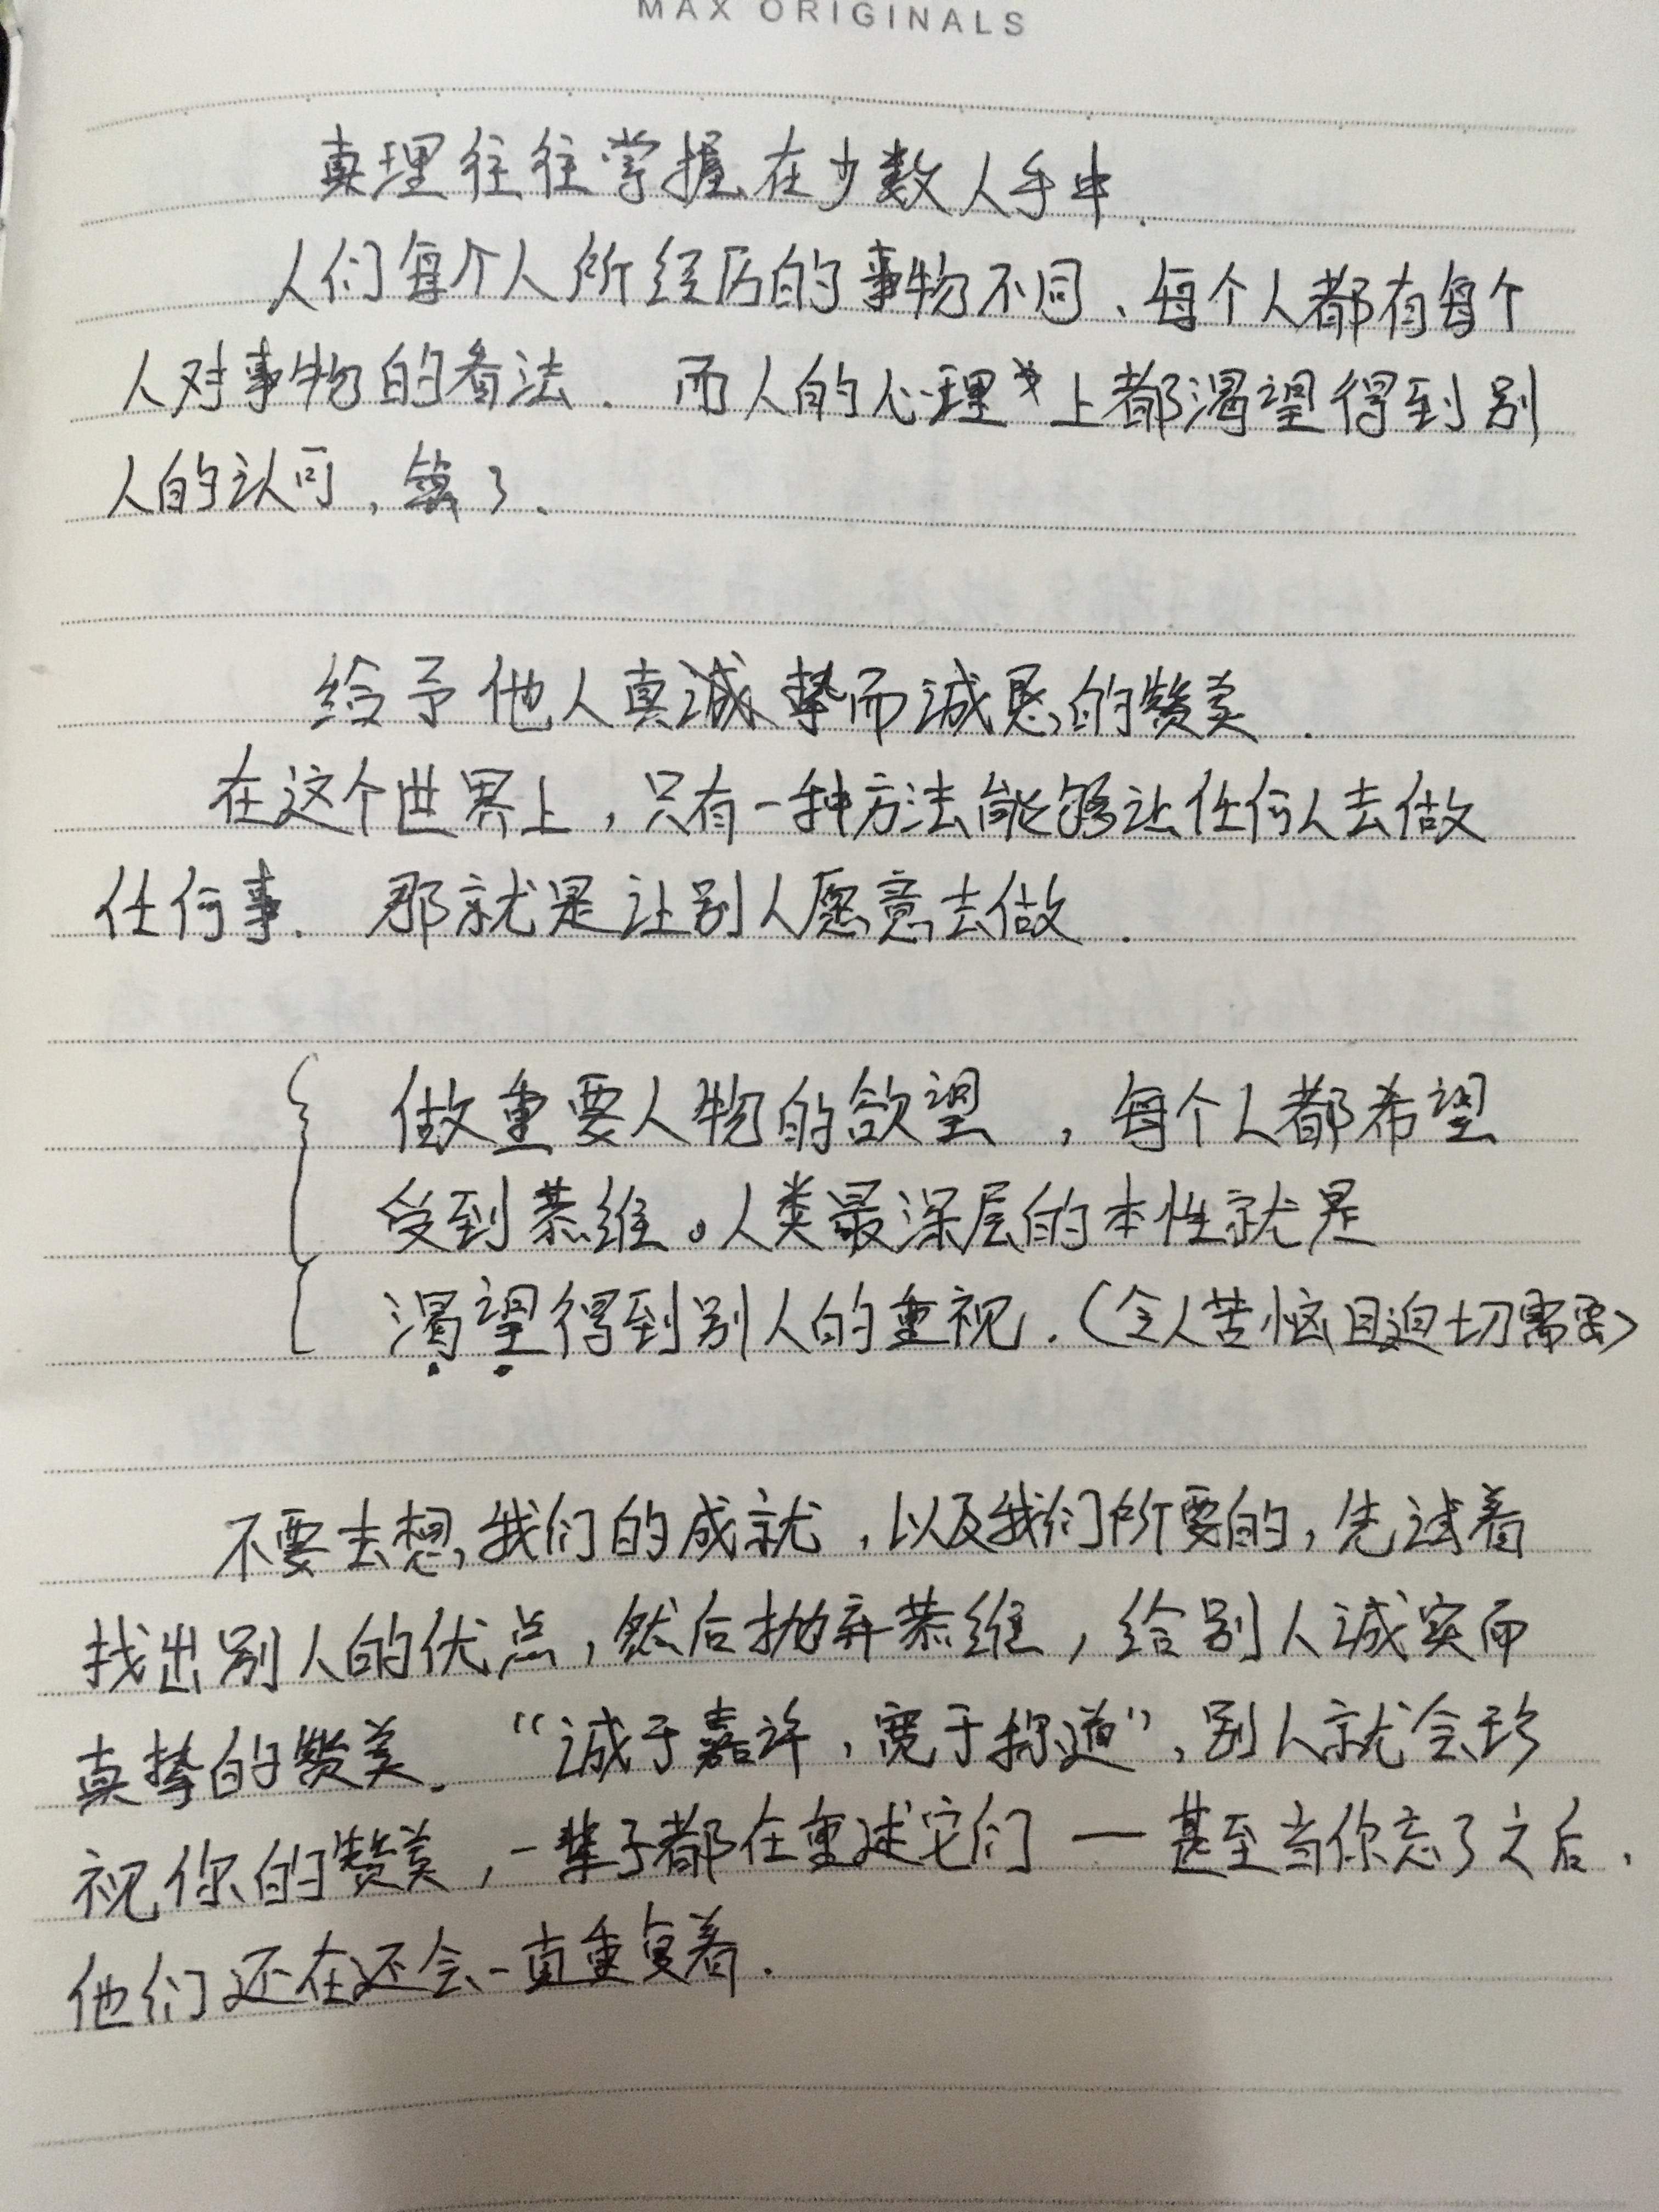 MAX ORIGINALS
真理往往掌握在少数人手中.
人们每个人所经历的事物不同、每个人都有每个
人对事物的看法. 而人的心理上都渴望得到别
人的认可,算了.
给予他人真诚挚而诚恳的赞美.
在这个世界上,只有一种方法能够让任何人去做
任何事. 那就是让别人愿意去做.
做重要人物的欲望,每个人都希望
受到恭维。人类最深层的本性就是
渴望得到别人的重视.(令人苦恼且迫切需要)
不要去想,我们的成就,以及我们所要的,先试着
找出别人的优点,然后抛弃恭维,给别人诚实而
真挚的赞美. “诚于嘉许,宽于称道”,别人就会珍
视你的赞美,一辈子都在重述它们一甚至当你忘了之后.
他们还在还会一直重复着.